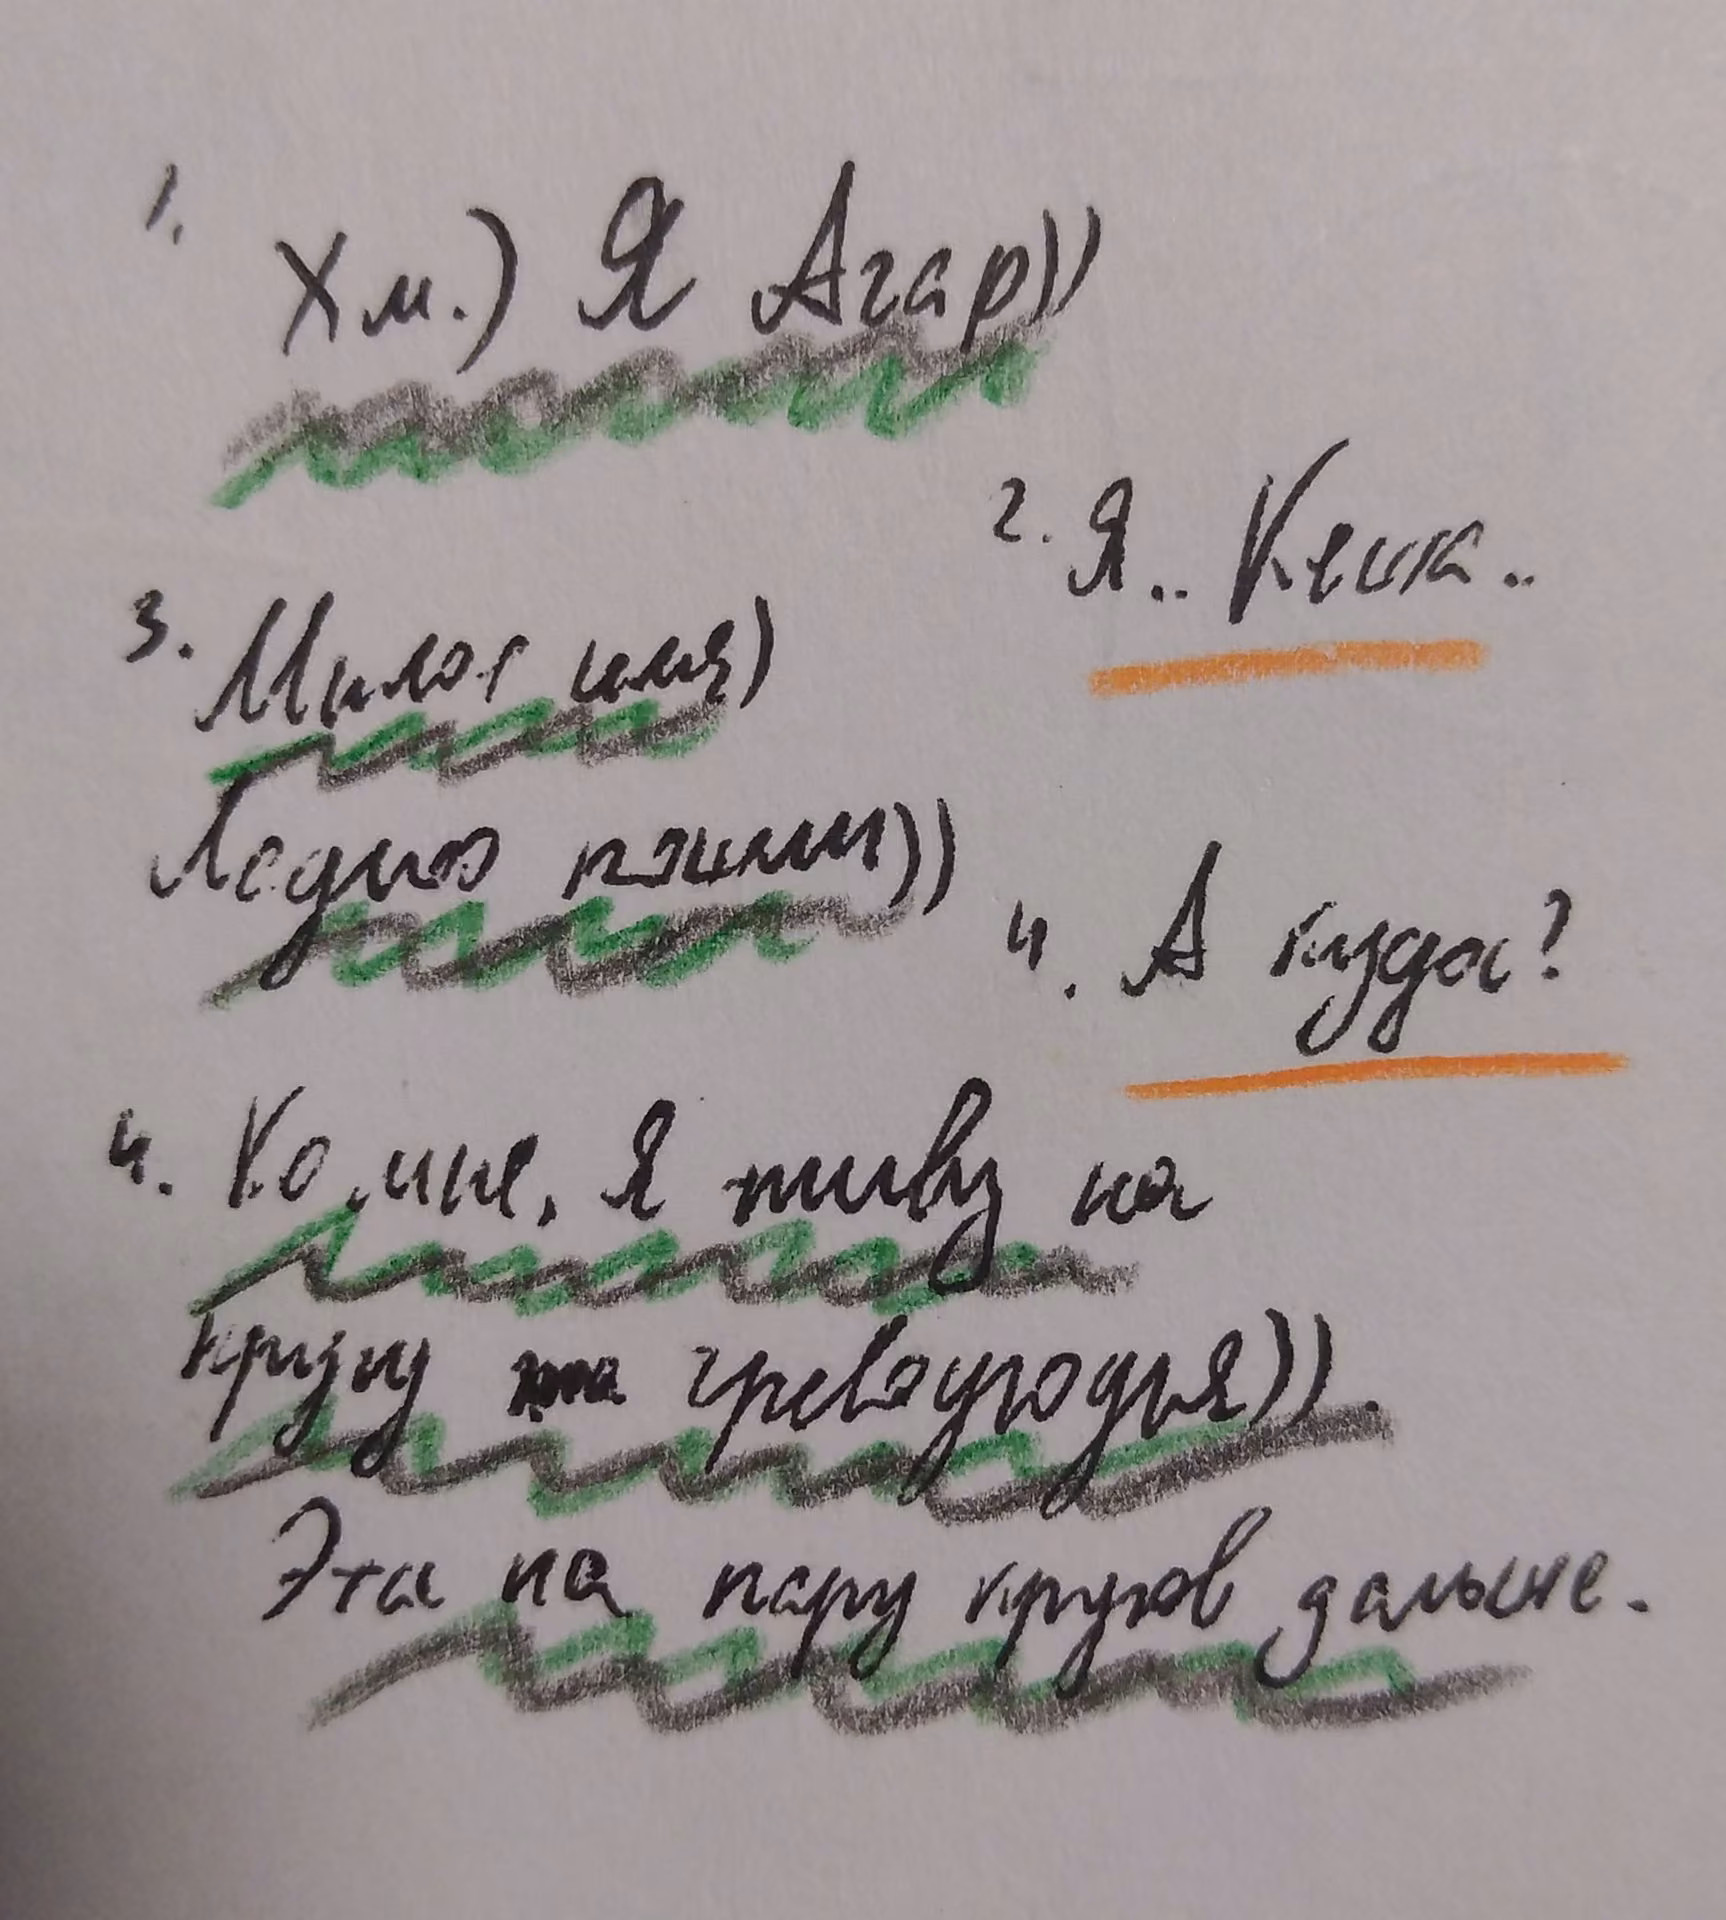 1. Хм.) Я Агар))
2. Я.. Кешка..
3. Милое имя)
Ладно пошли))
4. А куда?
4. Ко мне, я живу на
кругу чревоугодья)).
Эта на пару кругов дальше.